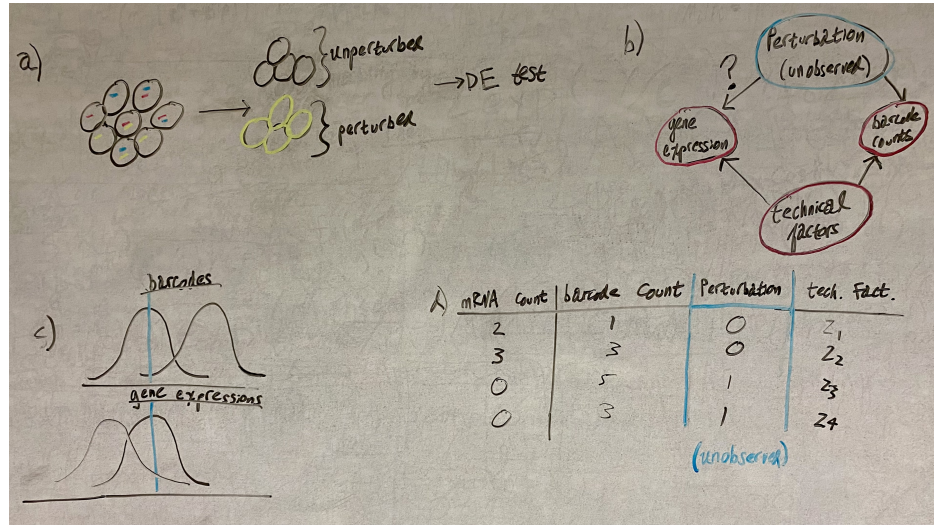 a)
unperturbed
perturbed
→DE test
b)
Perturbation
(unobserved)
?
gene
expression
barcode
counts
technical
factors
c)
barcodes
gene expressions
d)
mRNA Count | barcode Count | Perturbation | tech. Fact.
2 1 0 Z1
3 3 0 Z2
0 5 1 Z3
0 3 1 Z4
(unobserved)